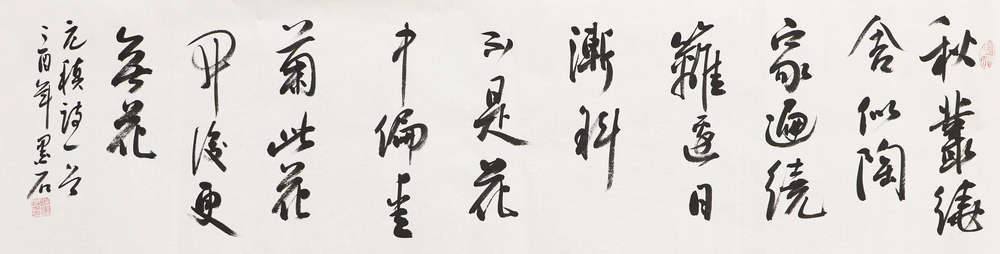 秋叢繞
舍似陶
家遍繞
籬邊日
漸斜
不是花
中偏愛
菊此花
開後更
無花
元稹詩一首
丁酉年墨石